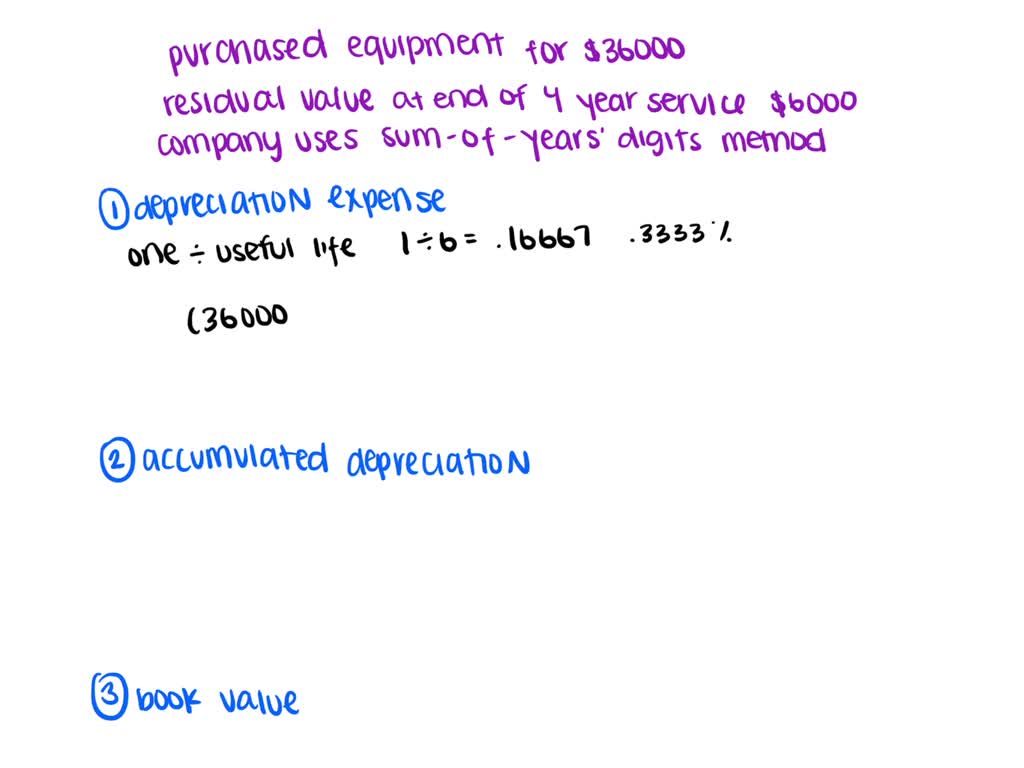 purchased equipment for $36000
residual value at end of 4 year service $6000
company uses sum-of-years' digits method
① depreciation expense
one ÷ useful life 1÷6= .16667 .3333%
(36000
② accumulated depreciation
③ book value